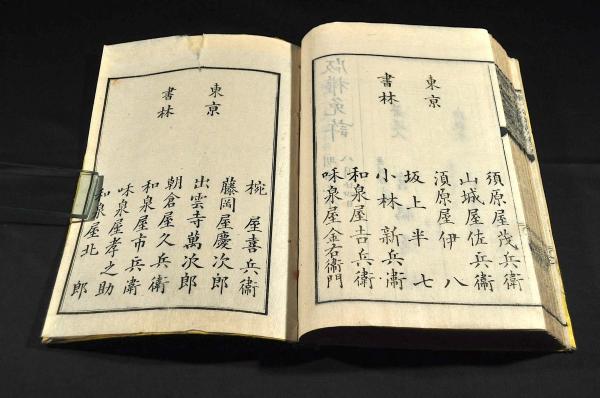 東亰
書林
須原屋茂兵衞
山城屋佐兵衞
須原屋伊八
坂上半七
小林新兵衞
和泉屋吉兵衞
咊泉屋金右衞門
版權免許
東亰
書林
椀屋喜兵衞
藤岡屋慶次郎
出雲寺萬次郎
朝倉屋久兵衞
和泉屋市兵衞
咊泉屋孝之助
和泉屋北郎